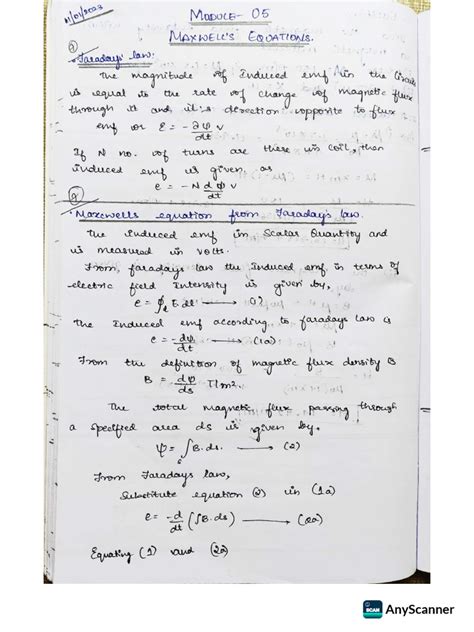 11/01/2023
MODULE- 05
MAXWELL'S EQUATIONS.
Faradays law:
The magnitude of Induced emf in the Circuit
is equal to the rate of change of magnetic flux
through it and it's direction opposite to flux
emf or E = -∂φ/dt v
If N no. of turns are there in coil, then
induced emf is given as
e = -N dφ/dt v
Maxwells equation from Faraday's law.
The induced emf is Scalar Quantity and
is measured in volts.
From, faradays law the Induced emf in terms of
electric field Intensity is given by,
e = ∮ E dl ⟶ (1)
The Induced emf according to faradays law is
e = -dφ/dt ⟶ (1a)
From the definition of magnetic flux density B
B = dφ/ds T/m²
The total magnetic flux passing through
a Specified area ds is given by.
ψ = ∫ B.ds. ⟶ (2)
From Faradays law,
Substitute equation (2) in (1a)
e = -d/dt (∫B.ds) ⟶ (2a)
Equating (1) and (2a)
SCAN
AnyScanner